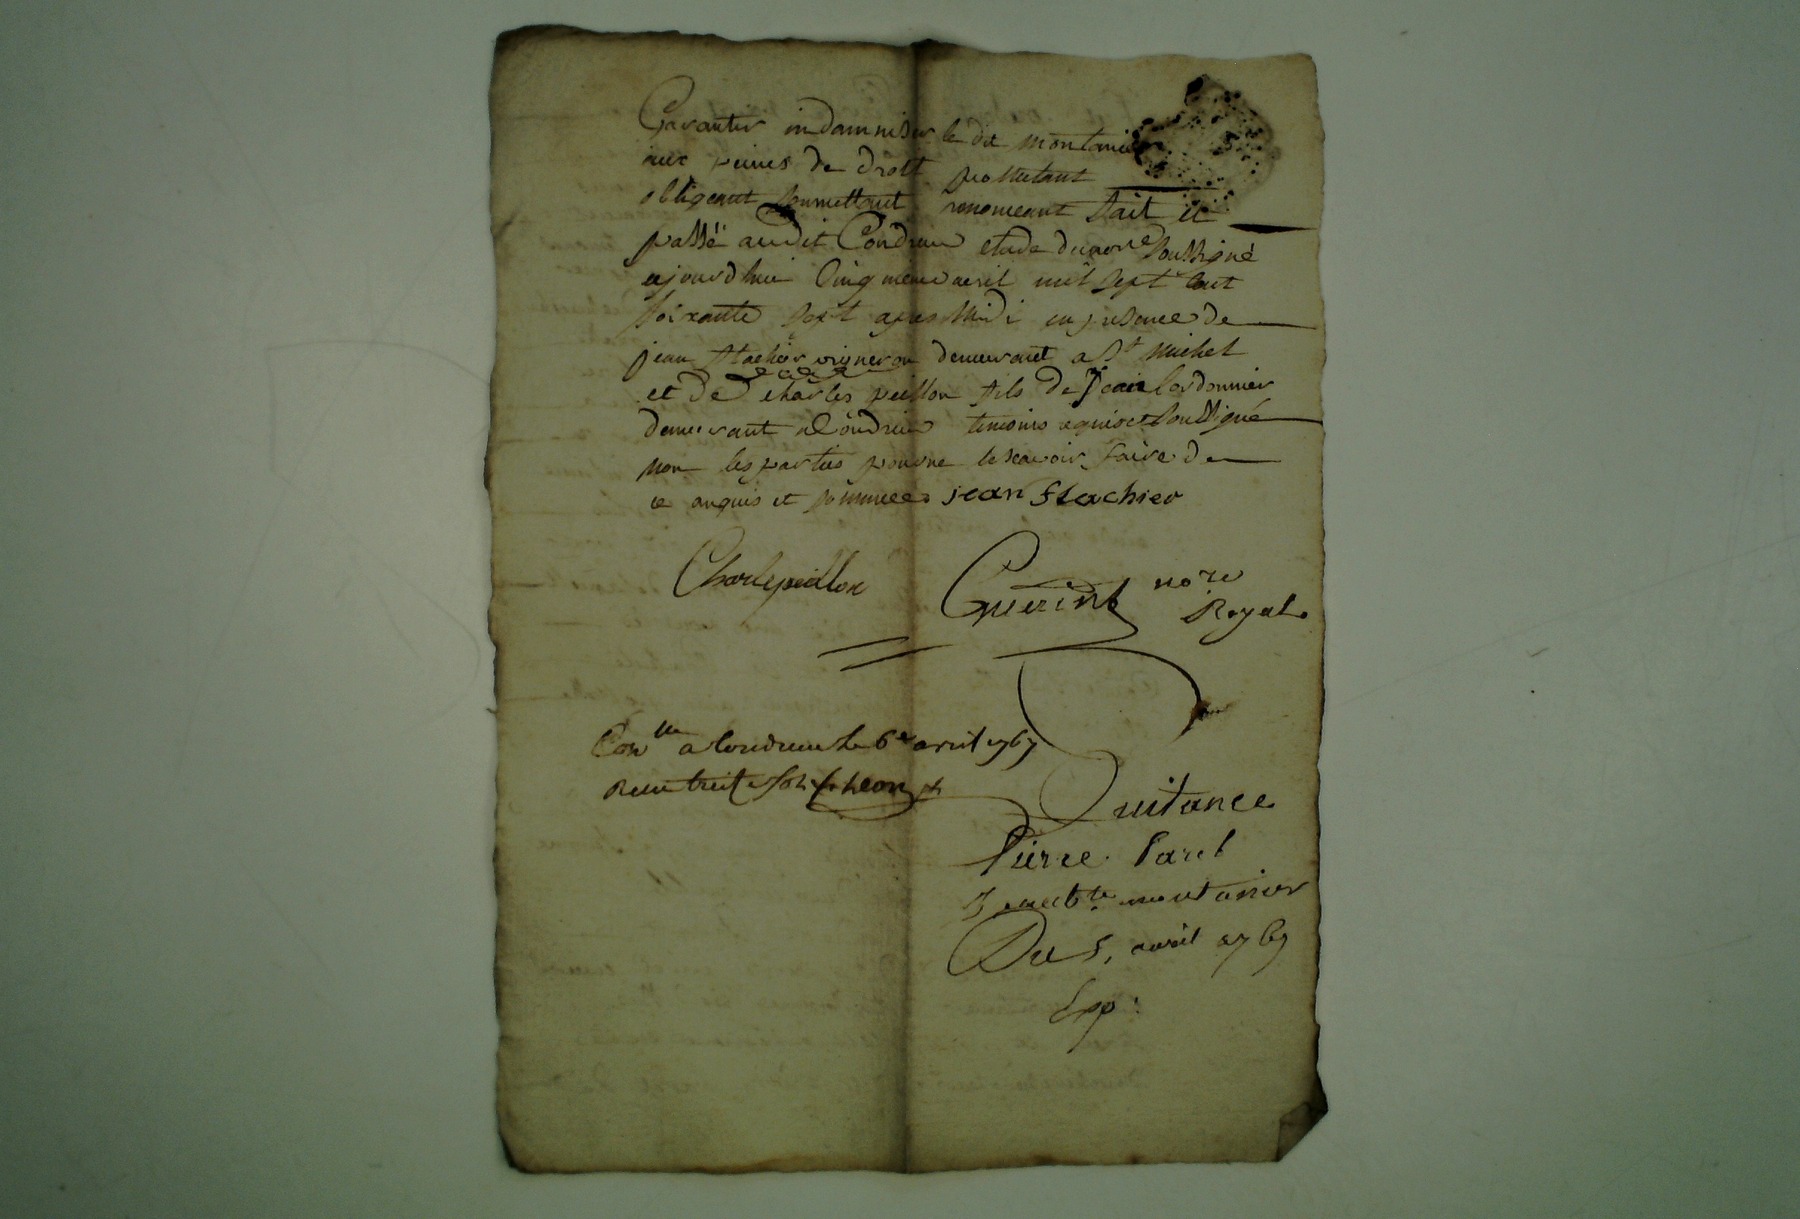 Garantir indamniser le dit montanier
aux peines de droit promettant
obligeant soumettant renonceant fait et
passé audit Condrieu etude du nore soussigné
ajourdhui cinquieme avril mil sept cent
soixante sept apres midi en presence de
jean flachier vigneron demeurant a St michel
et de charles peillon fils de Jean Cordonnier
demeurant a Condrieu temoins requis et soussigné
non les parties pour ne le scavoir faire de
ce enquis et sommées jean flachier
Charle peillon
Guerin nore
Royal
Conlle a Condrieu le 6e avril 1767
Recu treize sols
Quitance
Pierre
montanier
Du 5, avril 1767
Exp: